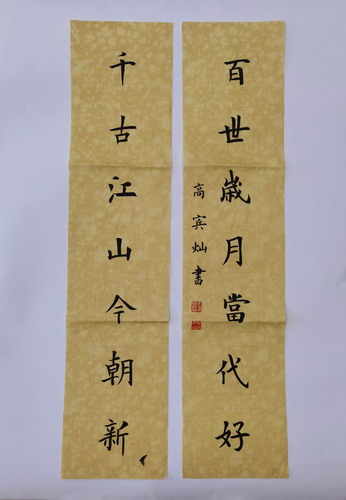 百世歲月當代好
高宾灿書
千古江山今朝新